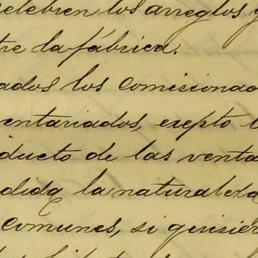 celebren los arreglos y
tre la fábrica.
ados los comisionado
entariados, exepto l
ducto de las venta
dida la naturaleza
comunes, si quisier